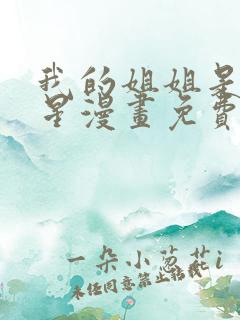 我的姐姐是
星漫畫免費
一朵小葱花i
未经同意禁止转载